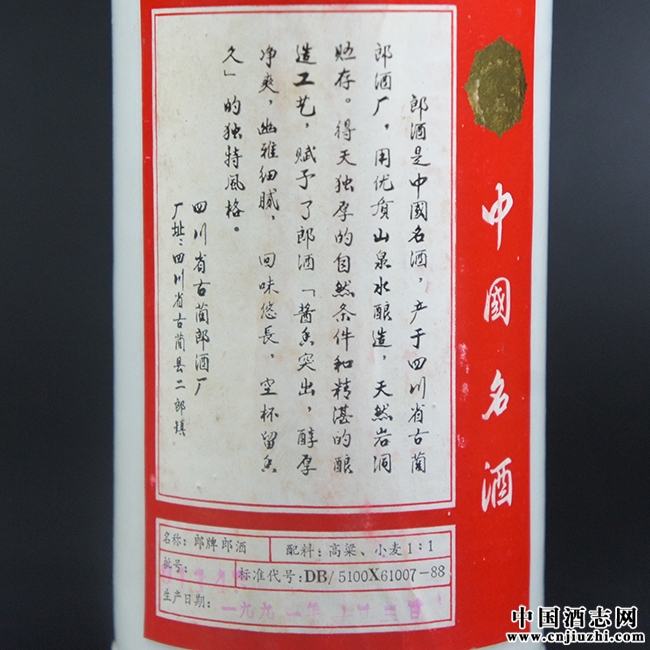 中國名酒
郎酒是中國名酒，产于四川省古蔺
郎酒厂，用优质山泉水酿造，天然岩洞
贮存。得天独厚的自然条件和精湛的酿
造工艺，赋予了郎酒「酱香突出，醇厚
净爽，幽雅细腻，回味悠長，空杯留香
久」的独特風格。
四川省古蔺郎酒厂
厂址：四川省古蔺县二郎镇
名称：郎牌郎酒
配料：高粱、小麦1：1
批号：
标准代号：DB/5100X61007-88
生产日期：一九九一年
中国酒志网
www.cnjiuzhi.com